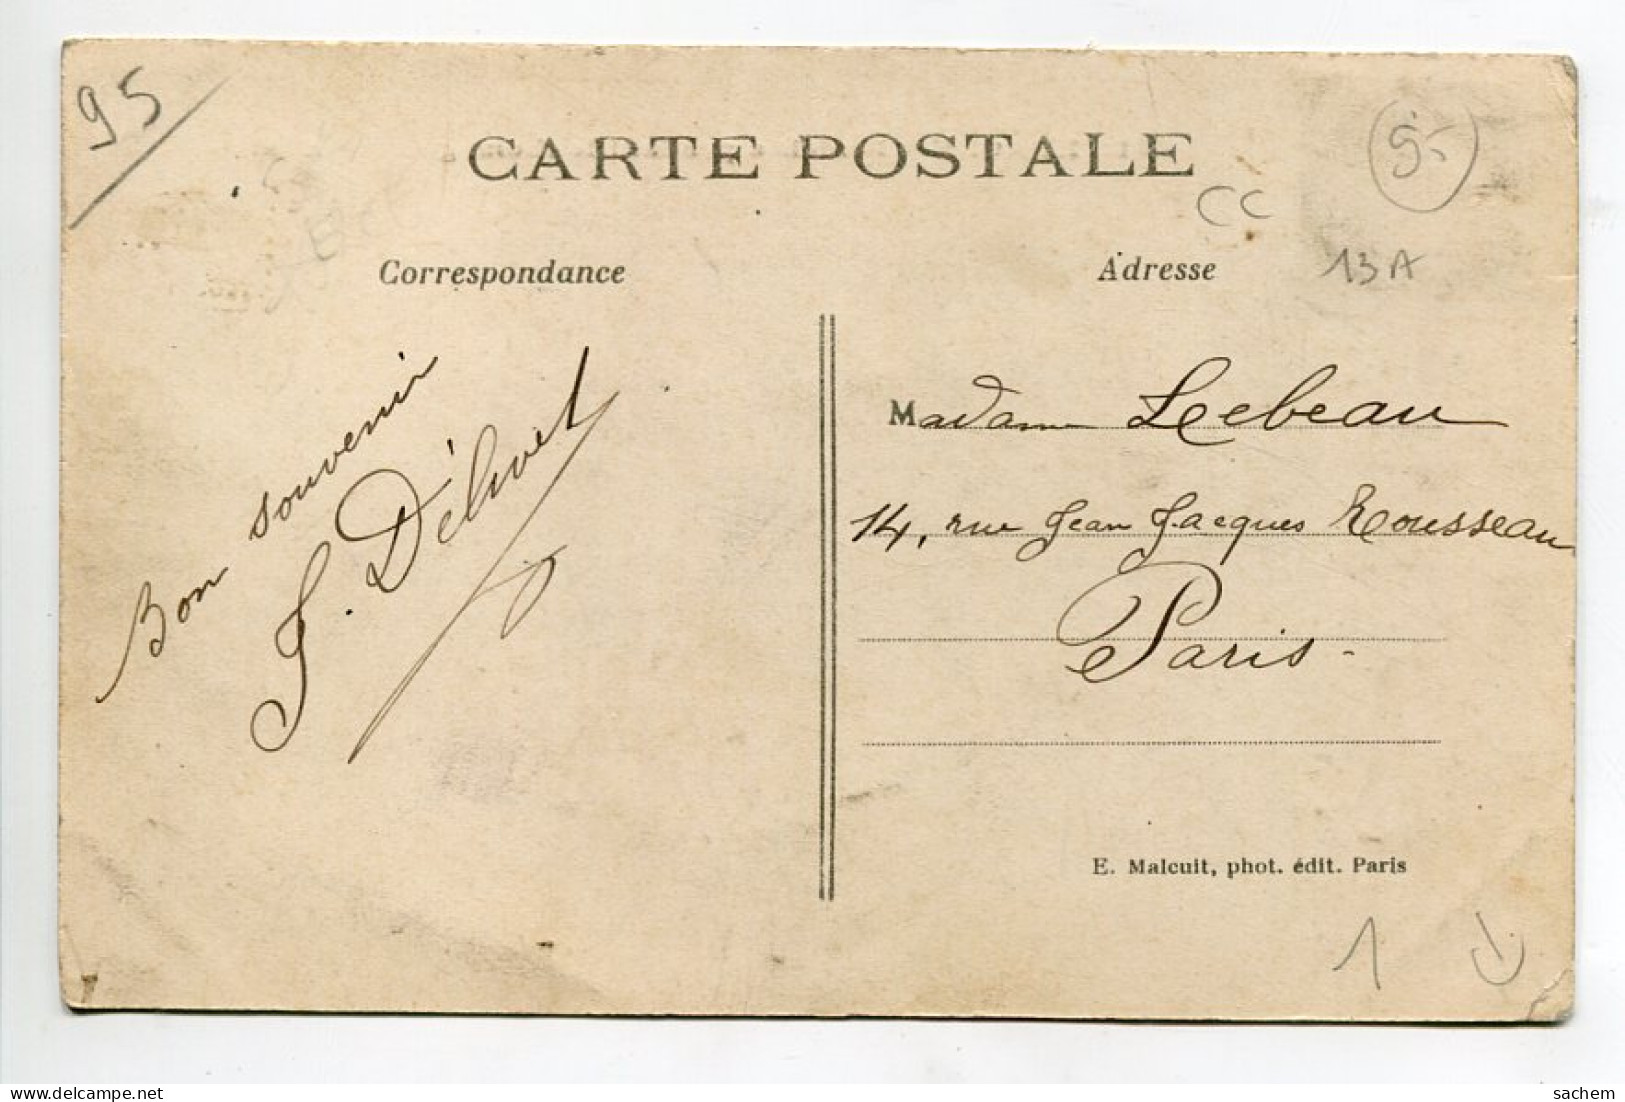 95
CARTE POSTALE
5-
CC
13A
Correspondance
Adresse
Bon souvenir
Madame Lebeau
14, rue Jean Jacques Rousseau
Paris -
E. Malcuit, phot. édit. Paris
1
www.delcampe.net
sachem